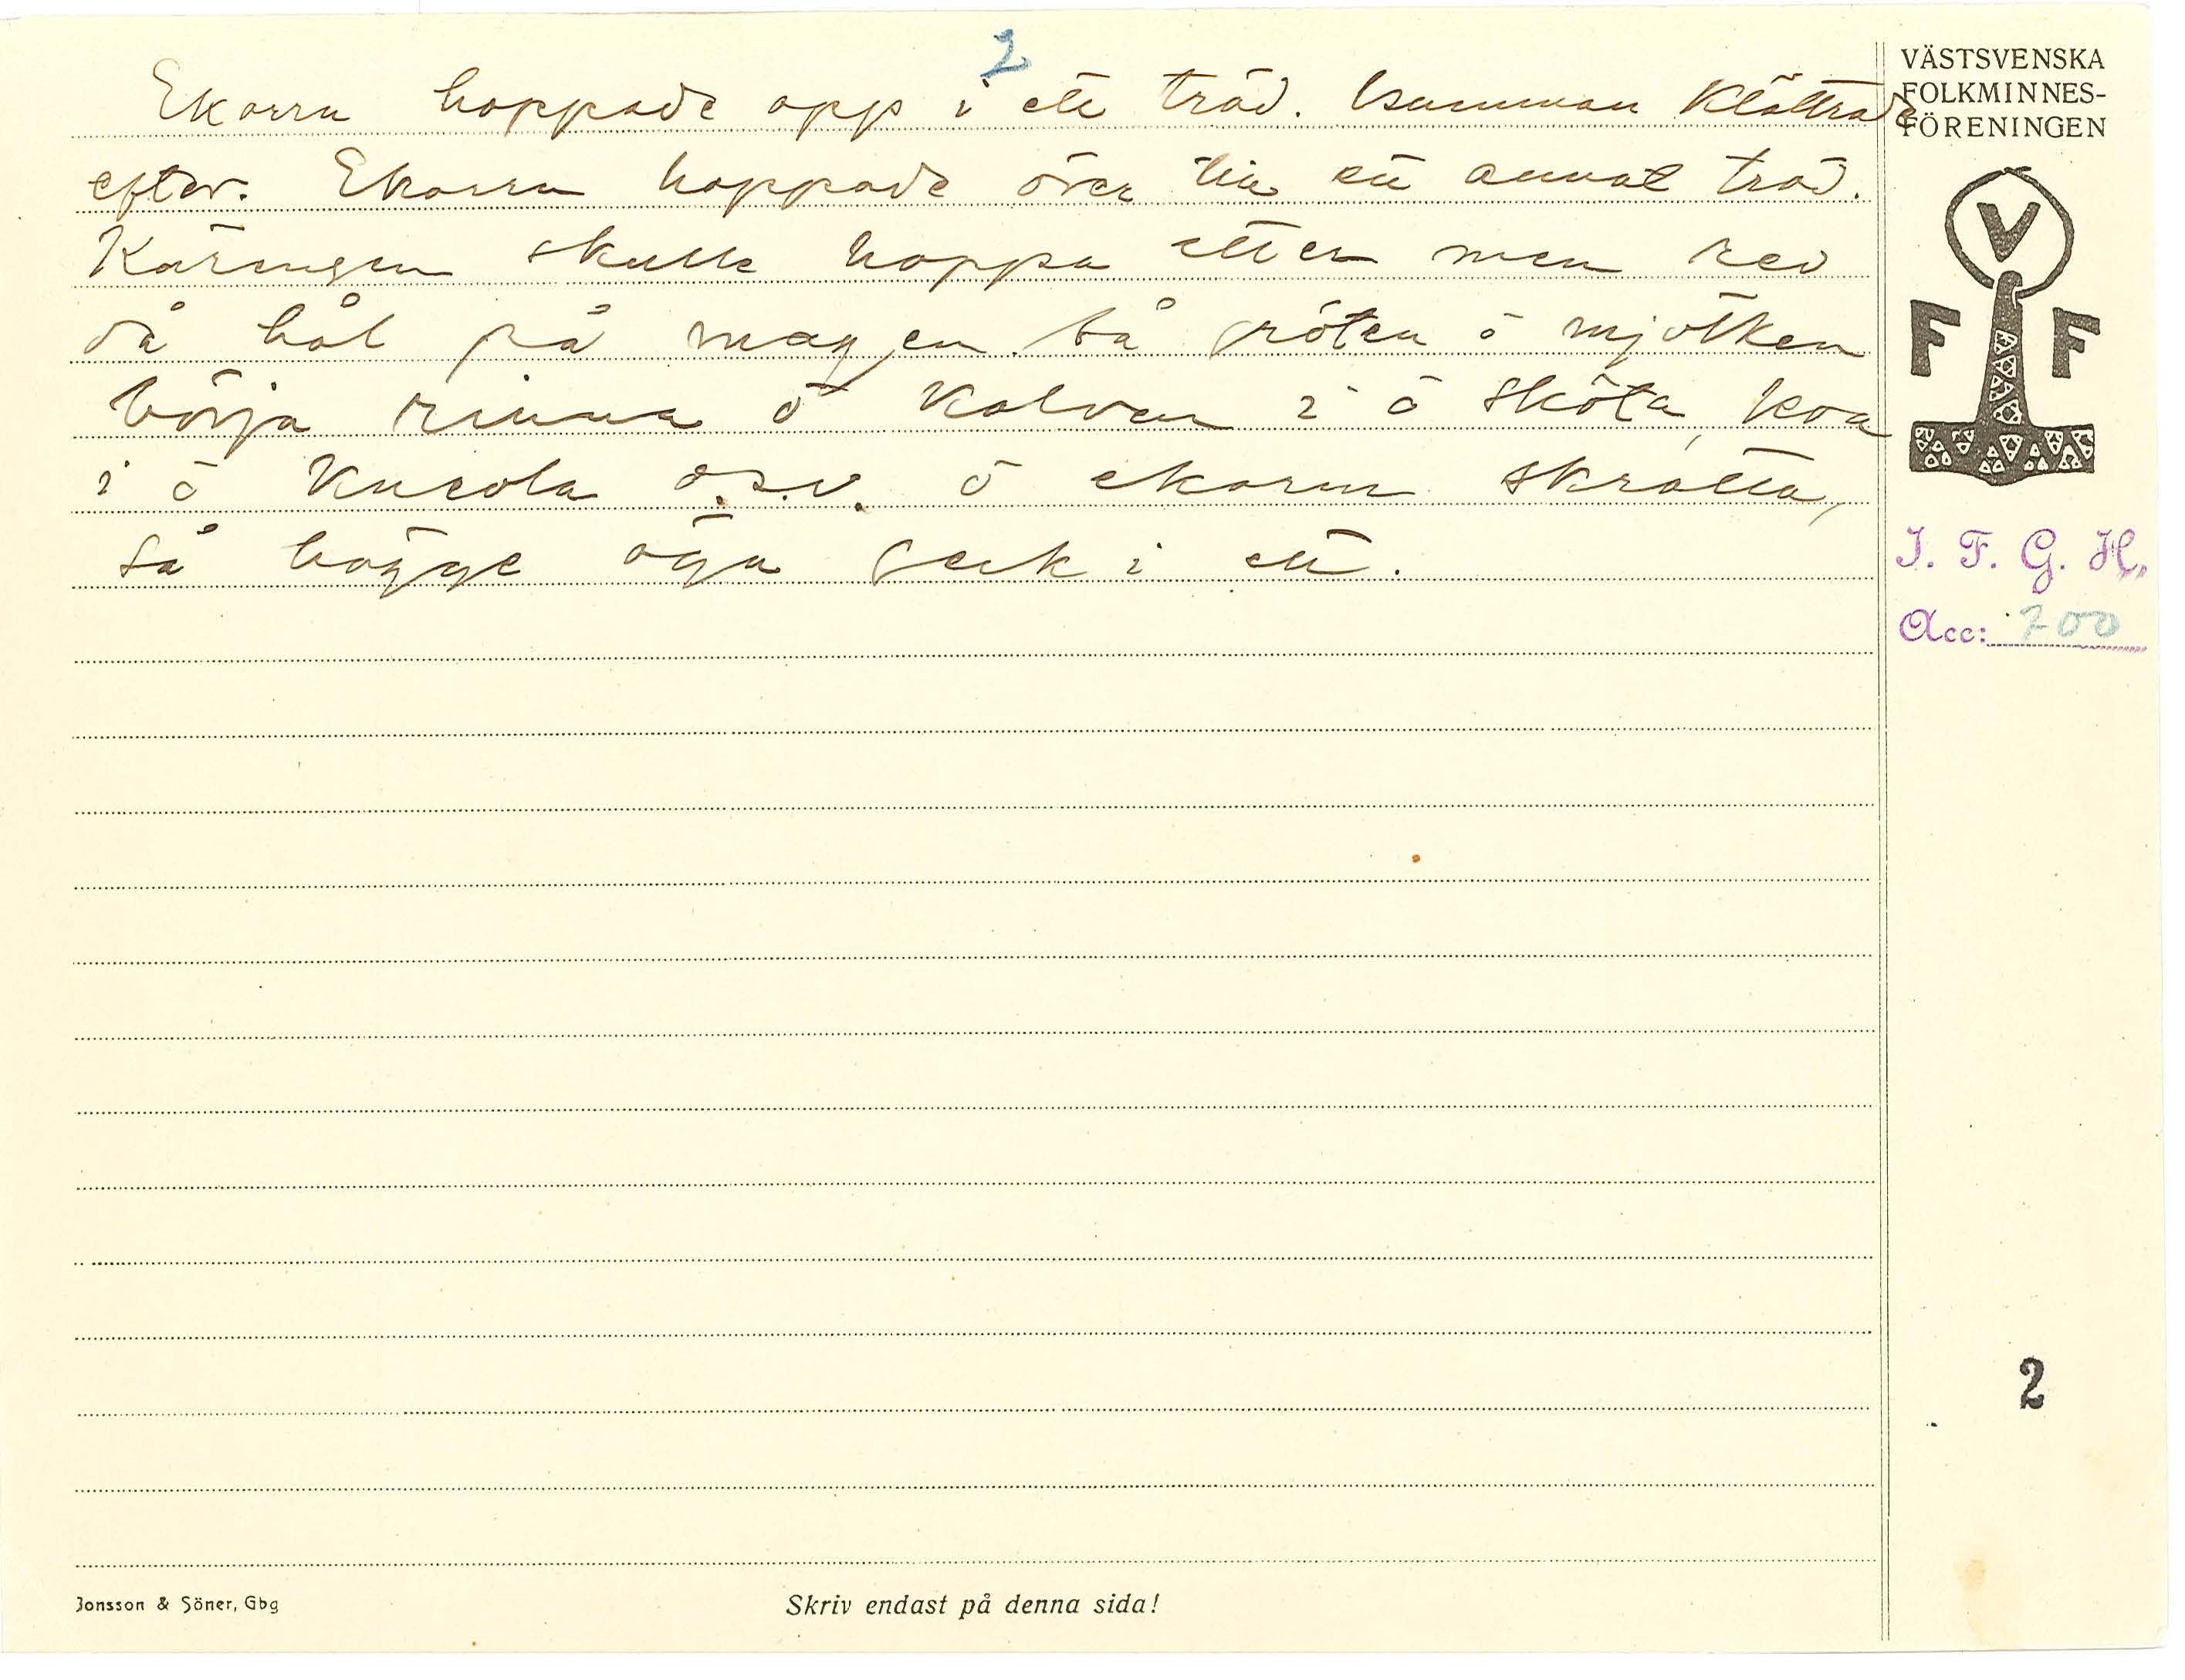 2
Ekorrn hoppade opp i ett träd. Gumman klättrade
efter. Ekorrn hoppade över till ett annat träd.
Käringen skulle hoppa etter men rev
då hål på magen. Så gröten ö mjölken
börja rinna ö kalven i ö sköta, koa
i ö
o.s.v. ö ekorrn skratta,
så bägge öga geck i ett.
VÄSTSVENSKA
FOLKMINNES-
FÖRENINGEN
V
F F
I. F. G. H.
Acc: 200
2
Jonsson & Söner, Gbg
Skriv endast på denna sida!